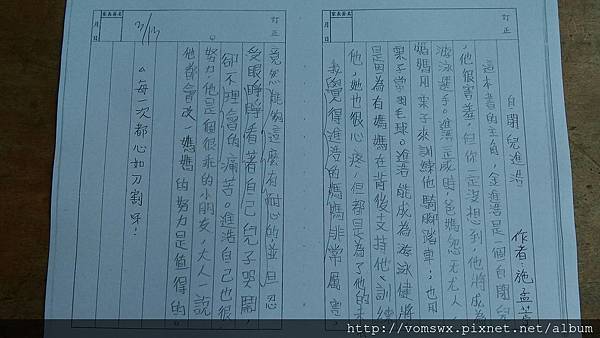 訂正
自閉兒進浩 作者:施孟菁
這本書的主角,金進浩是一個自閉兒
他很害羞,但你一定沒想到,他將成為
游泳選手。進浩三歲時,爸媽怨天尤人,
媽媽用栗子來訓練他騎腳踏車;也用
栗子當羽毛球。進浩能成為游泳健將
是因為有媽媽在背後支持他、訓練
他,她也很心疼,但都是為了他的未
我覺得進浩的媽媽非常厲害,
訂正
竟然能夠這麼有耐心的並且忍
受眼睜睜看著自己兒子哭鬧,
卻不理會的痛苦。進浩自己也很
努力,他是個很乖的小朋友,大人一說
他都會改,媽媽的努力是值得的。
。每一次都心如刀割呀!
3/13
月 日
月 日
http://vomswx.pixnet.net/album